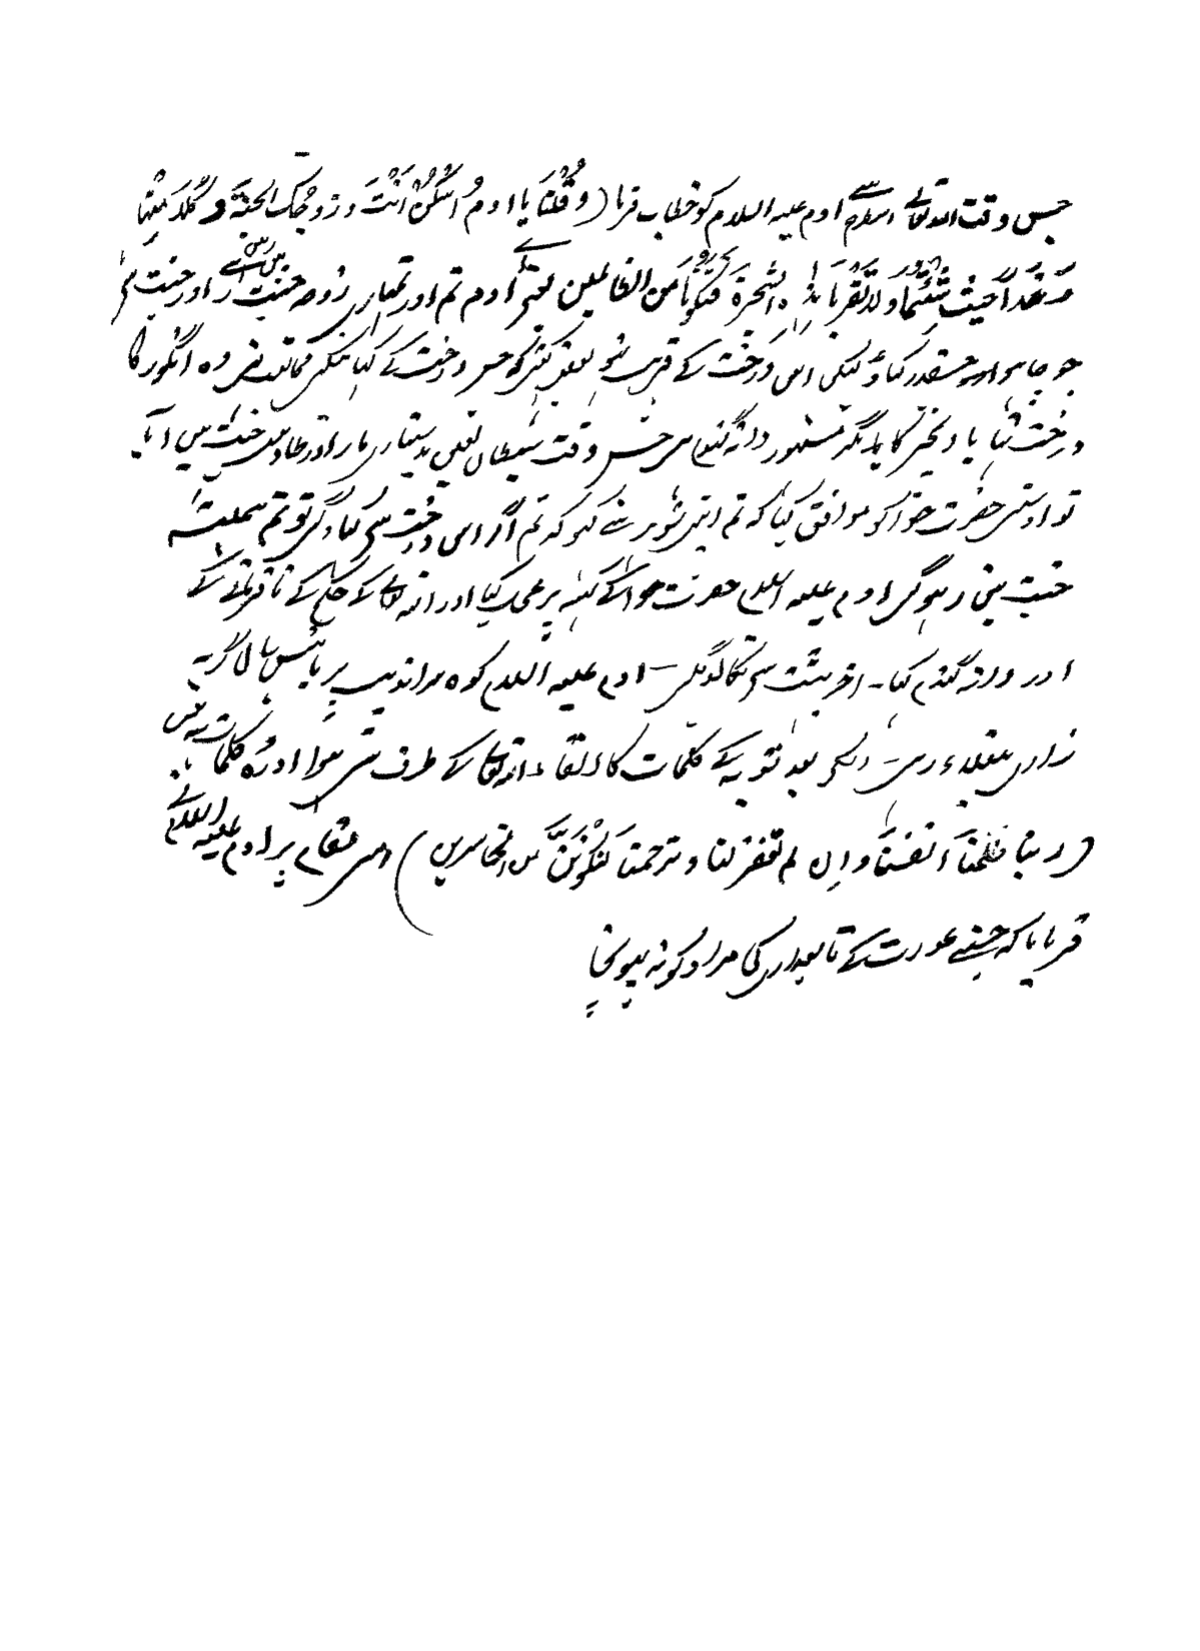 جس وقت اللہ تعالے اسطرح سے ادم علیہ السلام کو خطاب فرمایا (وَقُلْنَا یا ادمُ اسْکُنْ اَنْتَ وَزوجُکَ الجنّةَ وَکُلَا مِنْهَا
رَغَداً حَیْثُ شِئْتُمَا وَلَا تَقْرَبَا هٰذِهِ الشَّجَرَةَ فَتَکُونَا مِنَ الظالمین یعنے اے ادم تم اور تمہاری زوجہ جنت میں رہو اور جنت سے
جو چاہو اور جسقدر کھاؤ لیکن اس درخت کے قریب درخت کے وہ انگور کا
درخت تہا یا انجیر کا یا مگر مشہور دانہ گندم ہے جس وقت شیطان لعین مار اور طاوس جنت میں آیا
تو اوسنے حضرت حوّا کو موافق کیا کہ تم اپنے شوہر سے کہو کہ تم اگر اس درخت سے کھاوگے تو تم ہمیشہ
جنت میں رہوگے ادم علیہ السلام حضرت حوا کے کہنے پر عمل کیا اور اللہ تعالے کے حکم کے نافرمانے کے
اور دانہ گندم کہا ۔ اخر بہشت سے نکالو گئے ۔ ادم علیہ السلام کوہ سراندیب پر بائیس سال گریہ
زاری مبتلاء رہے ۔ بعد توبہ کے کلمات کا القاء اللہ تعالے کے طرف سے ہوا اور وہ کلمات یہ ہیں
(ربنا ظلمنَا انفسنَا وَاِن لم تغفر لنا وترحمنا لنکوْنَنَّ من الخاسرین) اس مقام پر ادم علیہ السلام نے
فرمایا کہ جسنے عورت کے تابعداری کی مراد کو نہ پہونچا